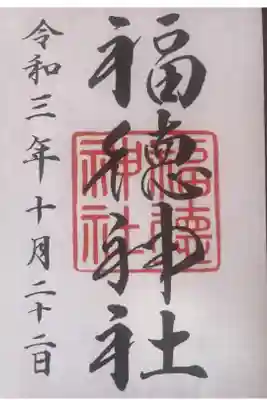 福悳神社
福德
神社
令和三年十月二十二日